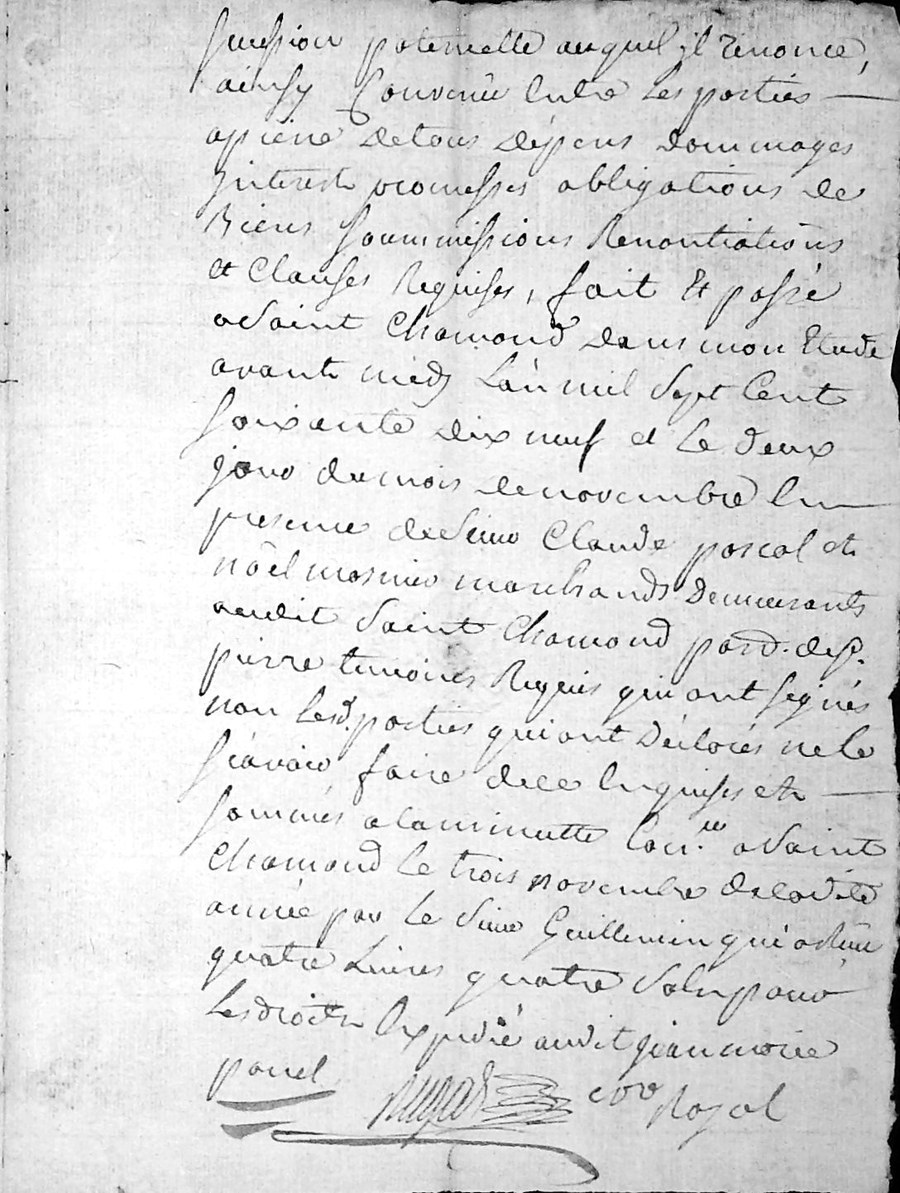 succession paternelle auquel il renonce,
ainsy Convenu Entre Les parties —
apiene detous dépens dommages
Interests promesses obligations de
Biens soummissions Renontiations
et Clauses Requises, fait Et passé
aSaint Chamond dans mon Etude
avant midy Lan mil Sept Cent
soixante dix neuf et Le deux
jour dumois denovembre En —
presence deSieur Claude pascal et
nöel mosnier marchands Demeurants
audit Saint Chamond par.d. de St.
pierre temoins Requis qui ont signés
non Lesd. parties qui ont Déclarés ne le
sçavoir faire dece Enquises et —
sommés alaminutte Con.lée aSaint
Chamond Le trois novembre deladite
année par Le Sieur Guillemin qui a Reçu
quatre Livres quatre Sols pour
Lesdroits Expedié audit jean marie
panel
not Royal